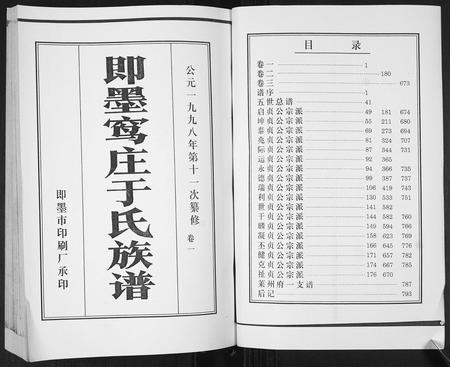 公元一九九八年第十一次纂修 卷一
即墨窎庄于氏族谱
即墨市印刷厂承印
目 录
卷一 1
卷二 180
卷三 673
谱序 1
五世总谱 41
启贞公宗派 49 181 674
坤贞公宗派 55 211 680
泰贞公宗派 69 273 694
兆贞公宗派 81 324 707
际贞公宗派 87 344 731
运贞公宗派 92 365
永贞公宗派 94 366 735
德贞公宗派 99 387 737
瑞贞公宗派 106 419 743
利贞公宗派 130 533 751
世贞公宗派 141 582
干贞公宗派 144 582 760
麟贞公宗派 149 594 766
凝贞公宗派 158 623 769
丕贞公宗派 166 645 776
健贞公宗派 171 657 782
克贞公宗派 174 667 785
祉贞公宗派 176 670
莱州府一支谱 787
后记 793